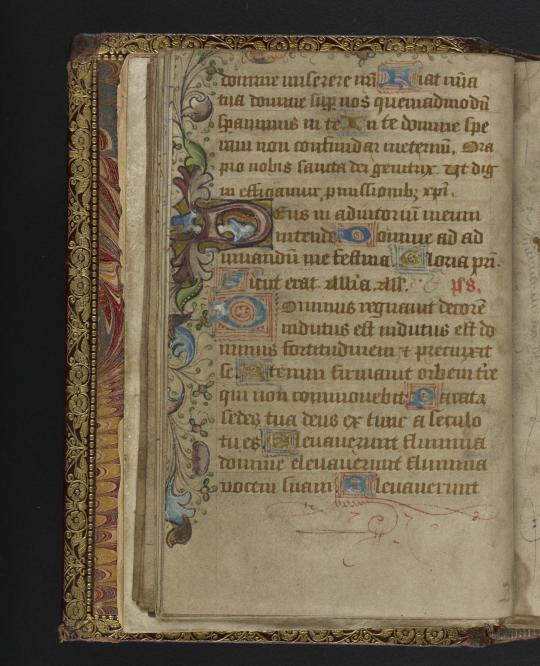 domine miserere nr̄i Fiat mīa
tua domine sup̄ nos quemadmodū
sperauimus in te In te domine spe
raui non confundar ineternū. Ora
pro nobis sancta dei genitrix. Vt dig
ni efficiamur p̄missionibꝫ xp̄i.
Deus in adiutoriū meum
intende Domine ad ad
iuuandū me festina Gloria pr̄i.
Sicut erat. Alla. All'. ps.
Dominus regnauit decorē
indutus est indutus est do
minus fortitudinem ⁊ precinxit
se Etenim firmauit orbem tr̄e
qui non commouebit' Parata
sedes tua deus ex tunc a seculo
tu es Eleuauerunt flumina
domine eleuauerunt flumina
uocem suam Eleuauerunt